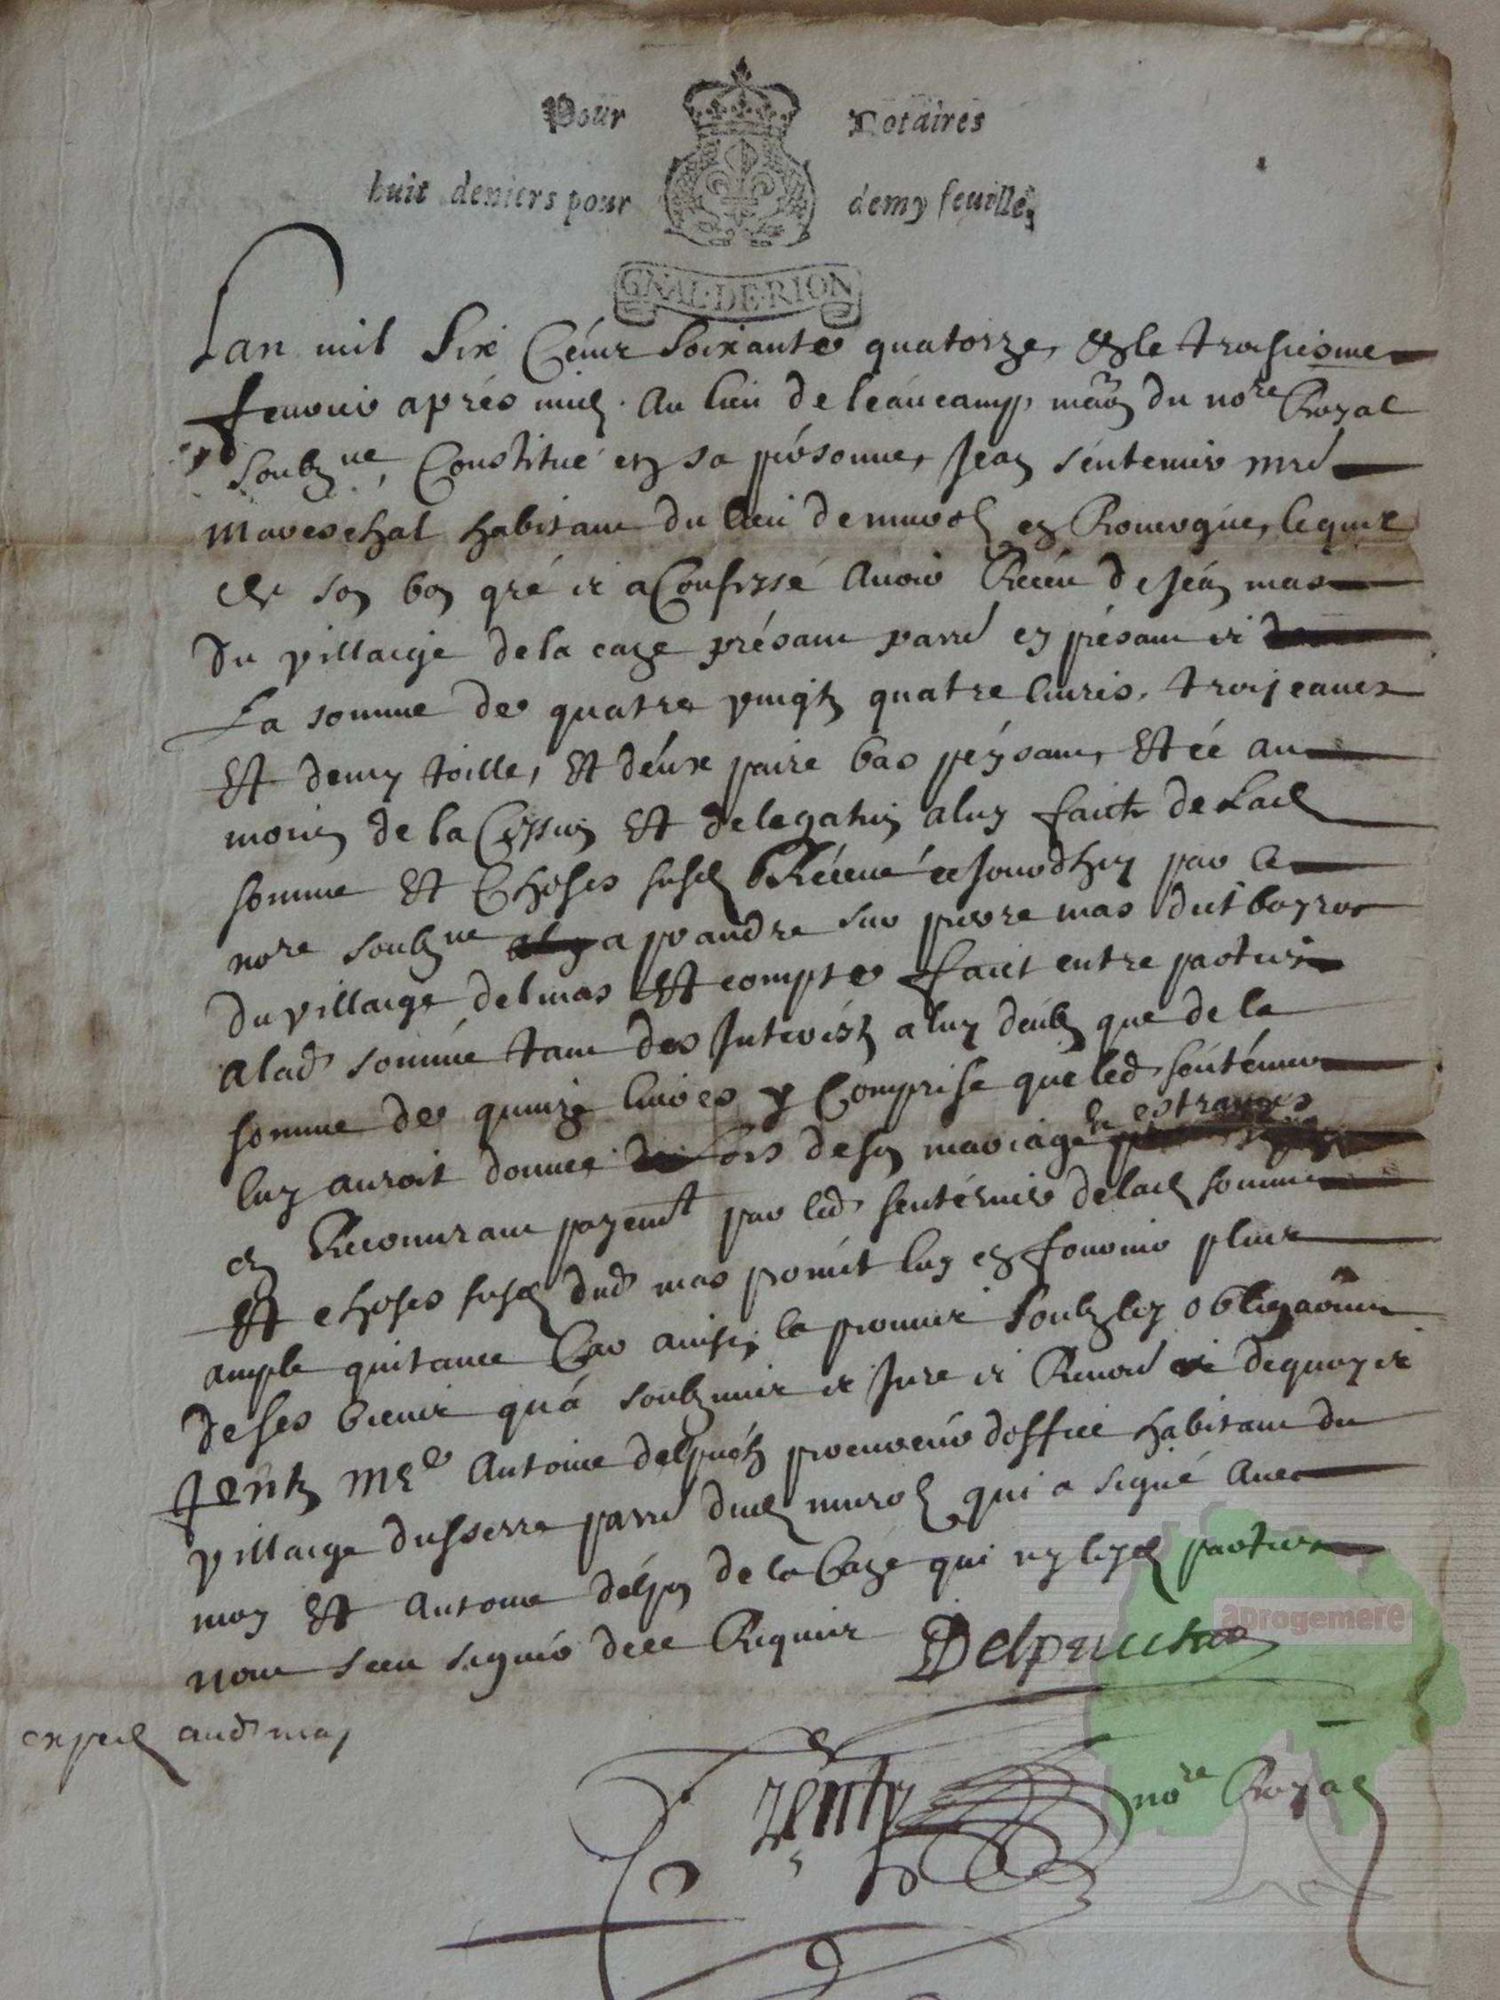 Pour Notaires
huit deniers pour demy feuille
GNAL·DE·RION
Lan mil Six Cens Soixante quatorze, & le troisiesme
fevrier après midy. Au lieu de leaucamp, du nore Royal
soubzne, Constitué en sa présonne, Jean senternio
Mareschal habitant du lieu de murols en Rouergue, lequel
de son bon gré a Confessé Avoir Receu de Jean mas
Du villaige de la caze présant en présant
La somme de quatre vingtz quatre livres, trois canes
Et demy toille, Et deux paire bas peysant, Et ce au
moien de la Cession Et delegation a luy faicte de Lad
somme Et Choses susd Receue ce Jourdhuy par le
nore soubzne a prandre sur pierre mas dit boyrou
Du villaige del mas Et compte faict entre parties
A lad somme tant des Interestz a luy deubz que de la
somme de quinze livres y Comprise que led senternio
luy auroit donnee Lors de son mariage
en estrangers
en Recouvrant payemt par led senternio de lad somme
Et choses susd dud mas promet luy en fournir plus
ample quitance Car ainsin la promis soubz les obligaõns
de ses biens qu'a soubzmis et Jure
Mre Antoine delpuech procureur doffice habitant du
villaige dusserre dud murols qui a signé Avec
moy Et Antoine delpon de la Caze qui parties
nont sceu signer de ce Requis Delpuech
exped aud mas
nore Royal
aprogemere